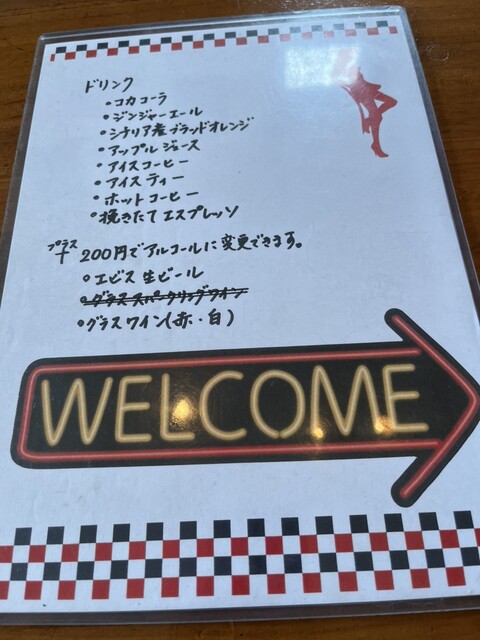 ドリンク
・コカコーラ
・ジンジャーエール
・シチリア産ブラッドオレンジ
・アップルジュース
・アイスコーヒー
・アイスティー
・ホットコーヒー
・挽きたてエスプレッソ
プラス
+ 200円でアルコールに変更できます。
・エビス生ビール
・グラススパークリングワイン
・グラスワイン(赤・白)
WELCOME